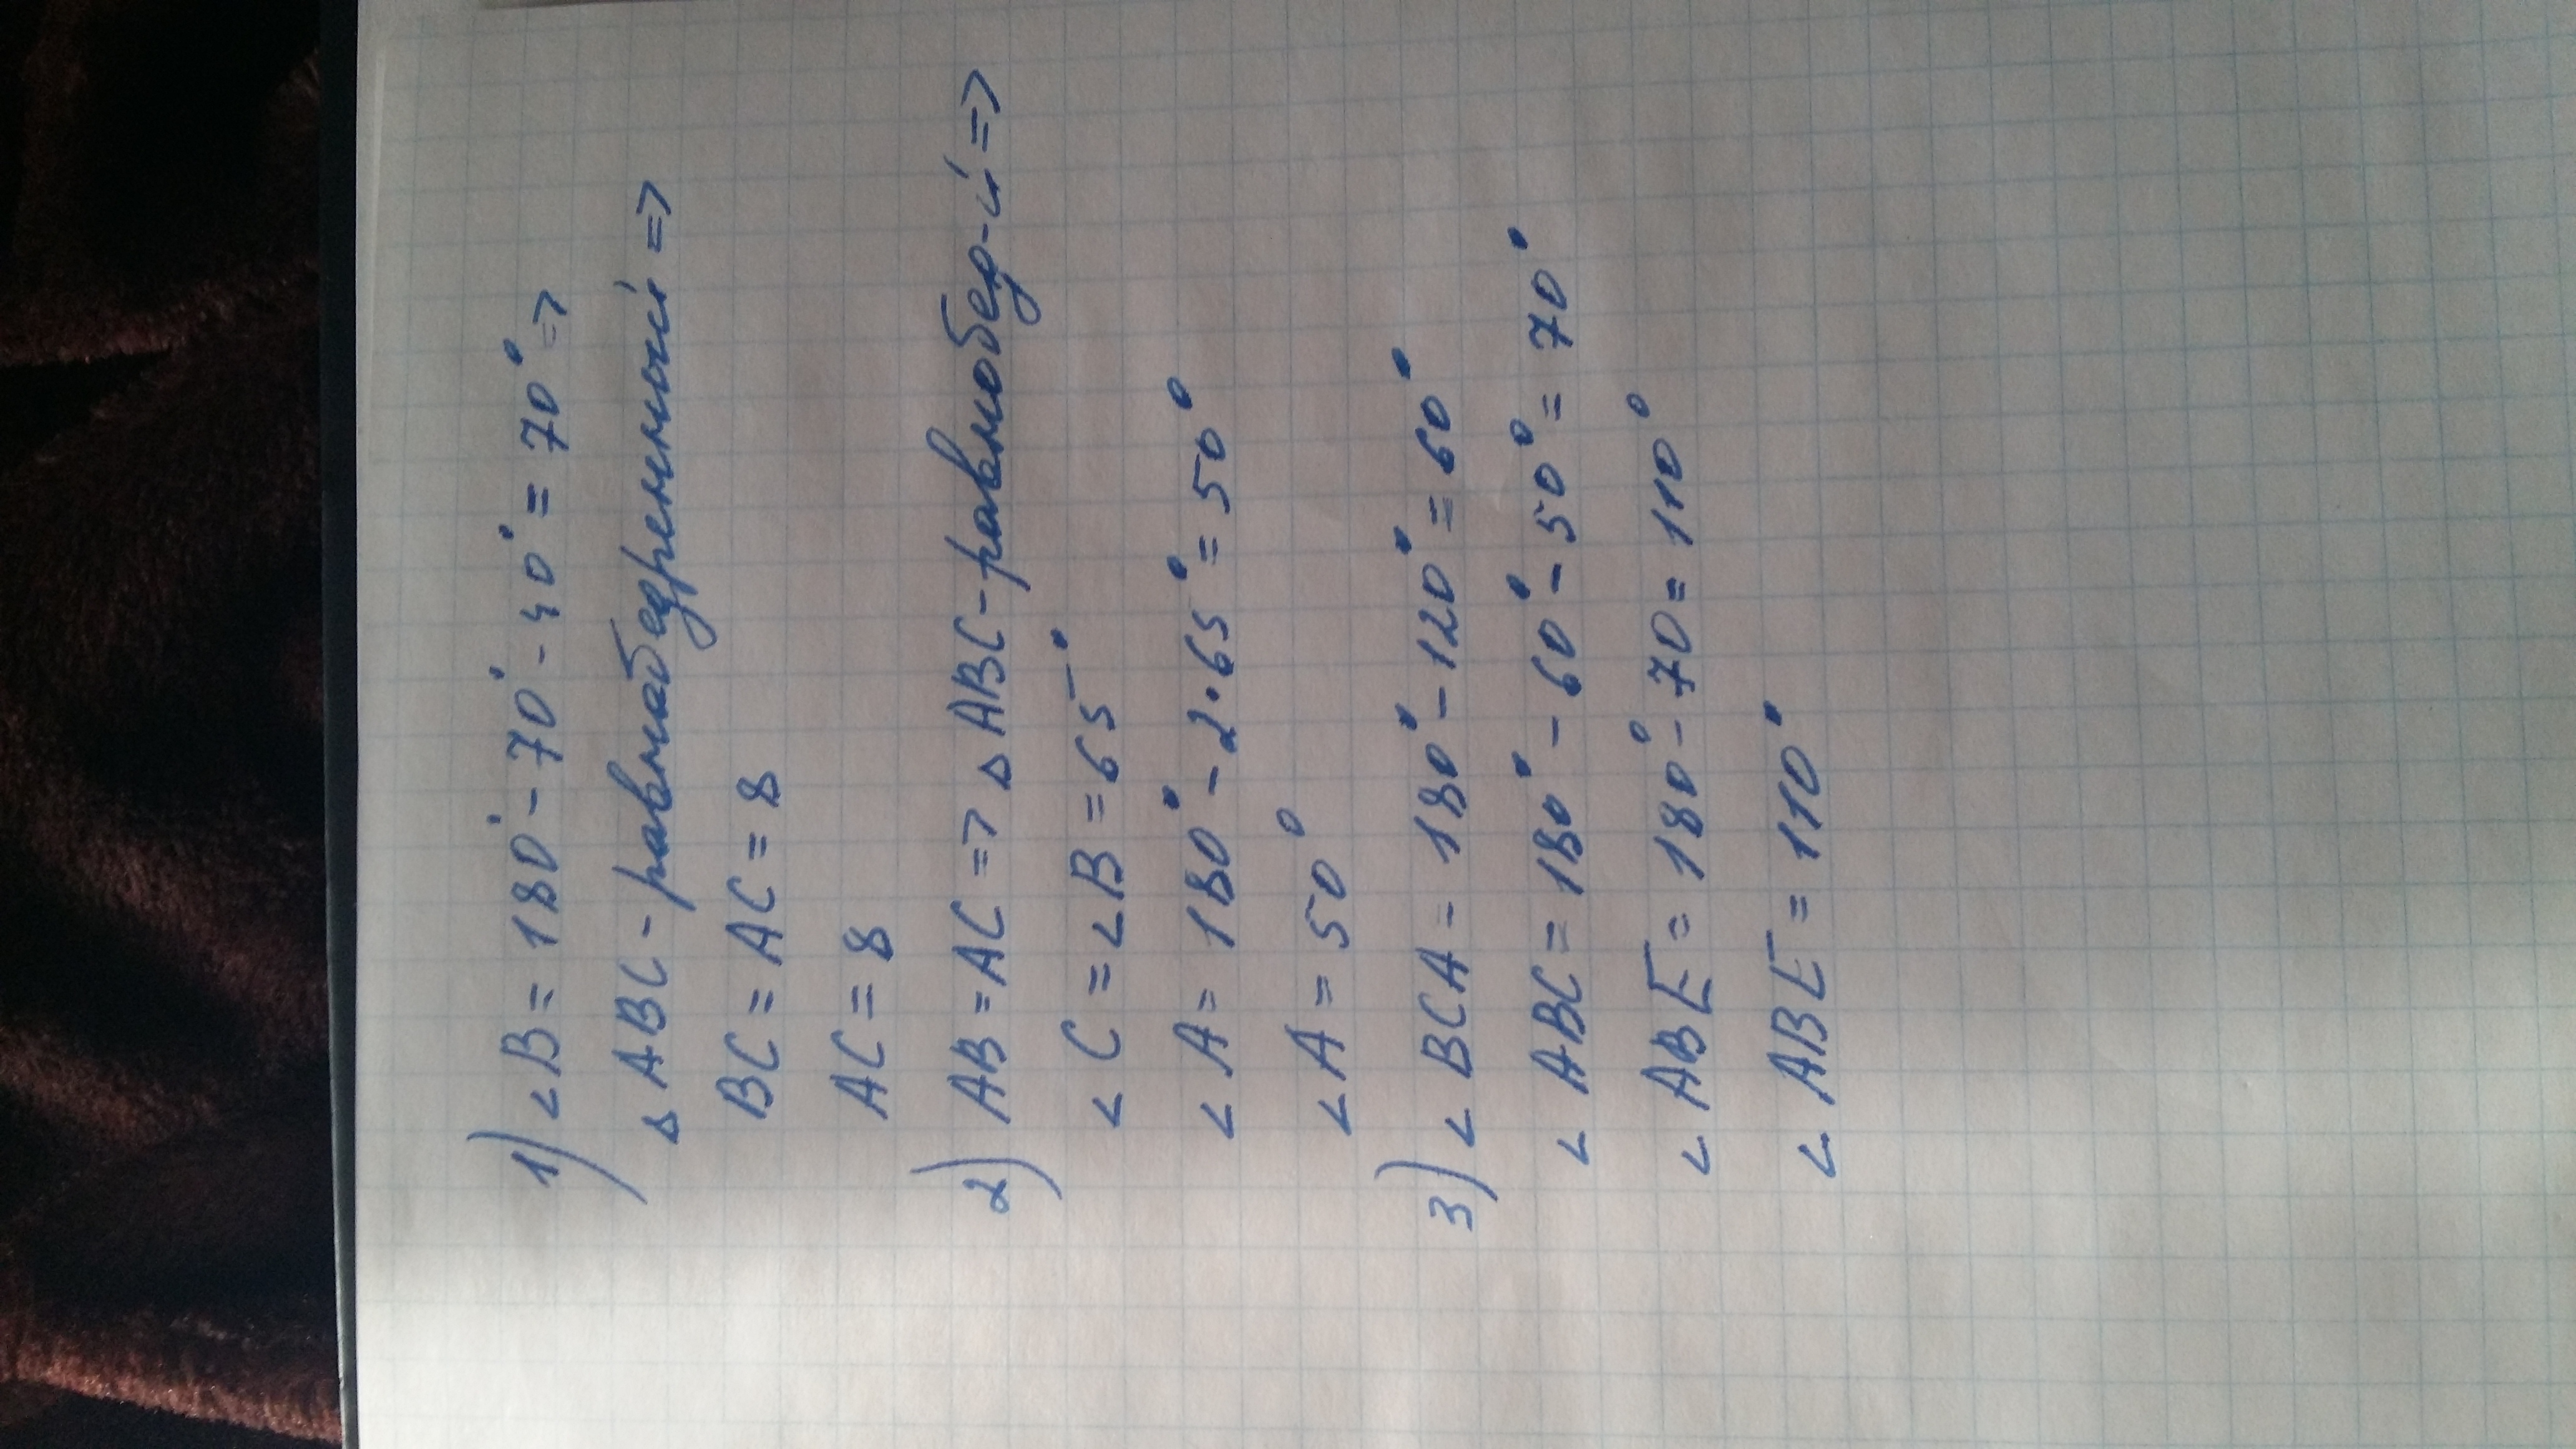 1) ∠B = 180° - 70° - 40° = 70° =>
△ABC - равнабедренный =>
BC = AC = 8
AC = 8
2) AB = AC => △ABC - равнобед-й =>
∠C = ∠B = 65°
∠A = 180° - 2·65° = 50°
∠A = 50°
3) ∠BCA = 180° - 120° = 60°
∠ABC = 180° - 60° - 50° = 70°
∠ABE = 180° - 70 = 110°
∠ABE = 110°